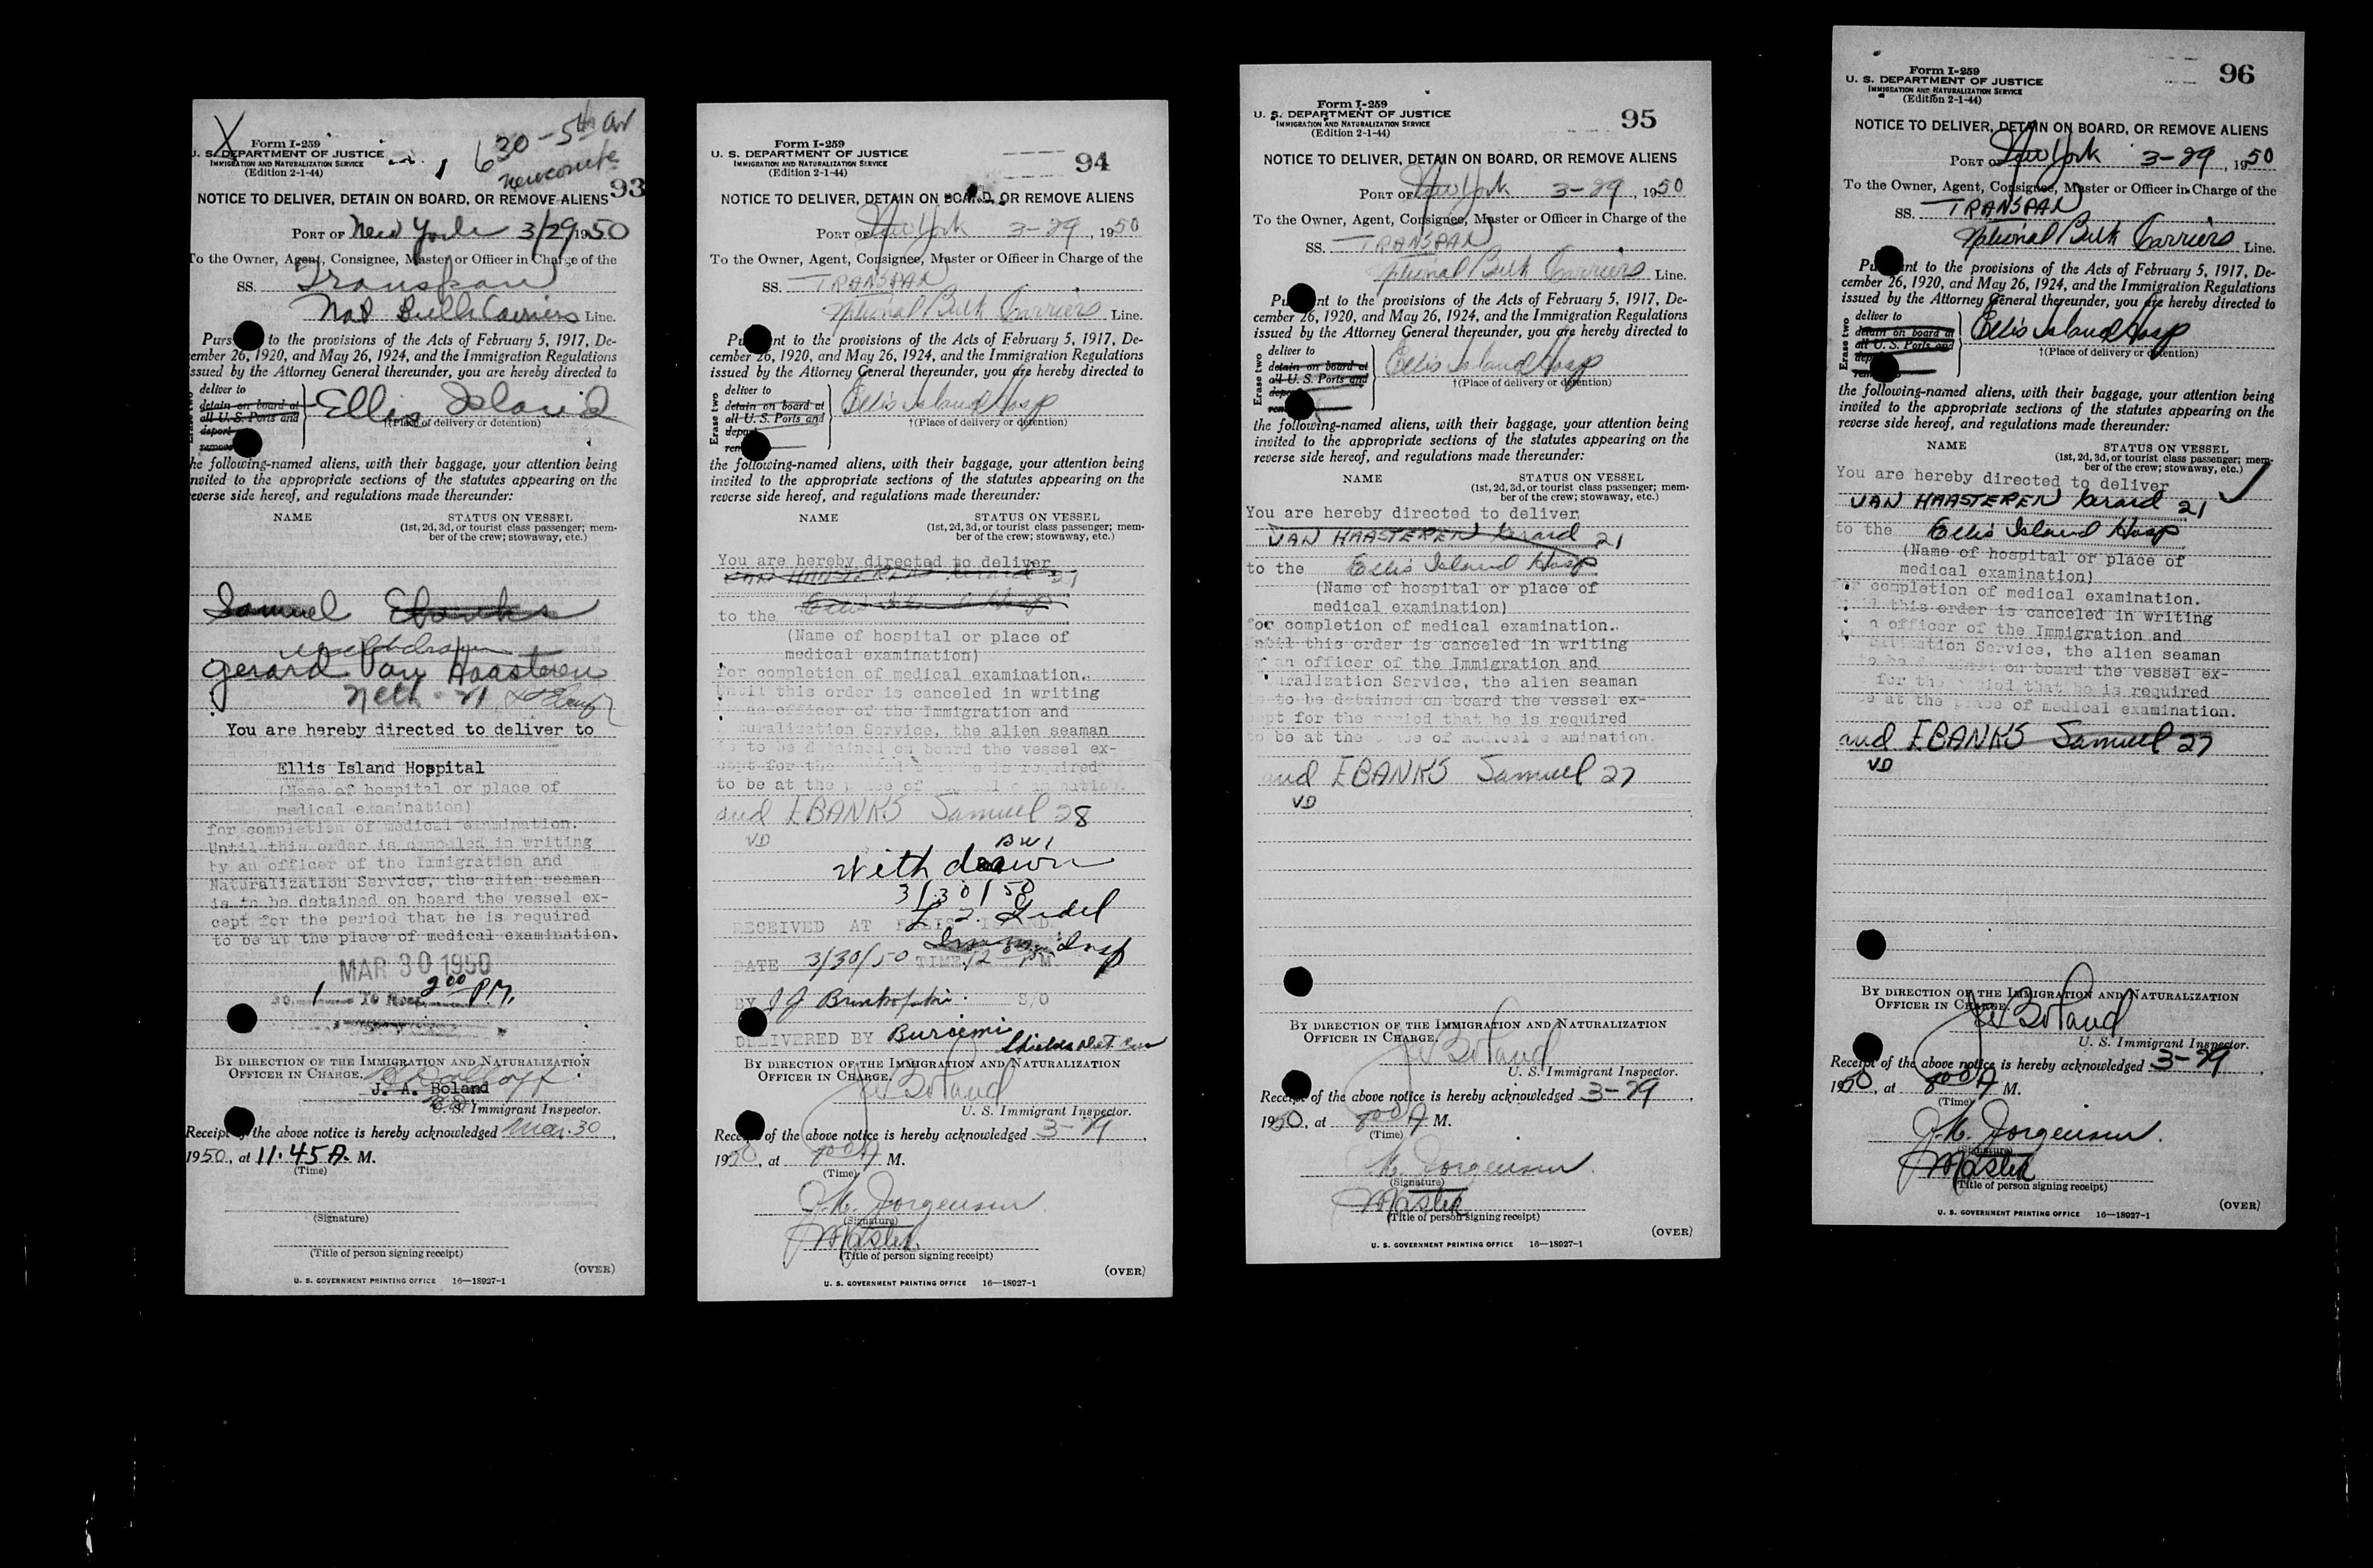 X
630 - 5th av
newcomute
Form I-259
U. S. DEPARTMENT OF JUSTICE
IMMIGRATION AND NATURALIZATION SERVICE
(Edition 2-1-44)
93
NOTICE TO DELIVER, DETAIN ON BOARD, OR REMOVE ALIENS
PORT OF New York 3/29, 1950
To the Owner, Agent, Consignee, Master or Officer in Charge of the
SS. Transpan
Nat Bulk Carriers Line.
Pursuant to the provisions of the Acts of February 5, 1917, De-
cember 26, 1920, and May 26, 1924, and the Immigration Regulations
issued by the Attorney General thereunder, you are hereby directed to
deliver to
detain on board at
all U. S. Ports and
deport
remove
Ellis Island
†(Place of delivery or detention)
the following-named aliens, with their baggage, your attention being
invited to the appropriate sections of the statutes appearing on the
reverse side hereof, and regulations made thereunder:
NAME STATUS ON VESSEL
(1st, 2d, 3d, or tourist class passenger; mem-
ber of the crew; stowaway, etc.)
Samuel Ebanks
withdrawn
Gerard Van Haasteren
Neth - 21
You are hereby directed to deliver to
Ellis Island Hospital
(Name of hospital or place of
medical examination)
for completion of medical examination.
Until this order is canceled in writing
by an officer of the Immigration and
Naturalization Service, the alien seaman
is to be detained on board the vessel ex-
cept for the period that he is required
to be at the place of medical examination.
MAR 30 1950
1 2 00 P.M.
BY DIRECTION OF THE IMMIGRATION AND NATURALIZATION
OFFICER IN CHARGE.
J. A. Boland
U. S. Immigrant Inspector.
Receipt of the above notice is hereby acknowledged Mar. 30,
1950, at 11.45 A. M.
(Time)
(Signature)
(Title of person signing receipt)
(OVER)
U. S. GOVERNMENT PRINTING OFFICE 16—18927-1
Form I-259
U. S. DEPARTMENT OF JUSTICE
IMMIGRATION AND NATURALIZATION SERVICE
(Edition 2-1-44)
94
NOTICE TO DELIVER, DETAIN ON BOARD, OR REMOVE ALIENS
PORT OF New York 3-29, 1950
To the Owner, Agent, Consignee, Master or Officer in Charge of the
SS. TRANSPAN
National Bulk Carriers Line.
Pursuant to the provisions of the Acts of February 5, 1917, De-
cember 26, 1920, and May 26, 1924, and the Immigration Regulations
issued by the Attorney General thereunder, you are hereby directed to
Erase two
deliver to
detain on board at
all U. S. Ports and
deport
rem
Ellis Island Hosp
†(Place of delivery or detention)
the following-named aliens, with their baggage, your attention being
invited to the appropriate sections of the statutes appearing on the
reverse side hereof, and regulations made thereunder:
NAME STATUS ON VESSEL
(1st, 2d, 3d, or tourist class passenger; mem-
ber of the crew; stowaway, etc.)
You are hereby directed to deliver
VAN HAASTEREN Gerard 21
to the Ellis Island Hosp
(Name of hospital or place of
medical examination)
for completion of medical examination.
Until this order is canceled in writing
an officer of the Immigration and
Naturalization Service, the alien seaman
is to be detained on board the vessel ex-
cept for the period he is required
to be at the place of medical examination.
and EBANKS Samuel 28
VD BWI
with drawn
3/30/50
RECEIVED AT ELLIS ISLAND
Imm. Insp
DATE 3/30/50 TIME 12 PM.
BY S/O
DELIVERED BY
BY DIRECTION OF THE IMMIGRATION AND NATURALIZATION
OFFICER IN CHARGE.
J A Boland
U. S. Immigrant Inspector.
Receipt of the above notice is hereby acknowledged 3-29,
1950, at 800 A M.
(Time)
J.K. Jorgensen
(Signature)
Master
(Title of person signing receipt)
(OVER)
U. S. GOVERNMENT PRINTING OFFICE 16—18927-1
Form I-259
U. S. DEPARTMENT OF JUSTICE
IMMIGRATION AND NATURALIZATION SERVICE
(Edition 2-1-44)
95
NOTICE TO DELIVER, DETAIN ON BOARD, OR REMOVE ALIENS
PORT OF New York 3-29, 1950
To the Owner, Agent, Consignee, Master or Officer in Charge of the
SS. TRANSPAN
National Bulk Carriers Line.
Pursuant to the provisions of the Acts of February 5, 1917, De-
cember 26, 1920, and May 26, 1924, and the Immigration Regulations
issued by the Attorney General thereunder, you are hereby directed to
Erase two
deliver to
detain on board at
all U. S. Ports and
deport
rem
Ellis Island Hosp
†(Place of delivery or detention)
the following-named aliens, with their baggage, your attention being
invited to the appropriate sections of the statutes appearing on the
reverse side hereof, and regulations made thereunder:
NAME STATUS ON VESSEL
(1st, 2d, 3d, or tourist class passenger; mem-
ber of the crew; stowaway, etc.)
You are hereby directed to deliver
VAN HAASTEREN Gerard 21
to the Ellis Island Hosp
(Name of hospital or place of
medical examination)
for completion of medical examination.
Until this order is canceled in writing
by an officer of the Immigration and
Naturalization Service, the alien seaman
is to be detained on board the vessel ex-
cept for the period that he is required
to be at the place of medical examination.
and EBANKS Samuel 27
VD
BY DIRECTION OF THE IMMIGRATION AND NATURALIZATION
OFFICER IN CHARGE.
J A Boland
U. S. Immigrant Inspector.
Receipt of the above notice is hereby acknowledged 3-29,
1950, at 800 A M.
(Time)
J.K. Jorgensen
(Signature)
Master
(Title of person signing receipt)
(OVER)
U. S. GOVERNMENT PRINTING OFFICE 16—18927-1
Form I-259
U. S. DEPARTMENT OF JUSTICE
IMMIGRATION AND NATURALIZATION SERVICE
(Edition 2-1-44)
96
NOTICE TO DELIVER, DETAIN ON BOARD, OR REMOVE ALIENS
PORT OF New York 3-29, 1950
To the Owner, Agent, Consignee, Master or Officer in Charge of the
SS. TRANSPAN
National Bulk Carriers Line.
Pursuant to the provisions of the Acts of February 5, 1917, De-
cember 26, 1920, and May 26, 1924, and the Immigration Regulations
issued by the Attorney General thereunder, you are hereby directed to
Erase two
deliver to
detain on board at
all U. S. Ports and
dep
rem
Ellis Island Hosp
†(Place of delivery or detention)
the following-named aliens, with their baggage, your attention being
invited to the appropriate sections of the statutes appearing on the
reverse side hereof, and regulations made thereunder:
NAME STATUS ON VESSEL
(1st, 2d, 3d, or tourist class passenger; mem-
ber of the crew; stowaway, etc.)
You are hereby directed to deliver
VAN HAASTEREN Gerard 21
to the Ellis Island Hosp
(Name of hospital or place of
medical examination)
for completion of medical examination.
Until this order is canceled in writing
an officer of the Immigration and
Naturalization Service, the alien seaman
to be detained on board the vessel ex-
for the period that he is required
be at the place of medical examination.
and EBANKS Samuel 27
VD
BY DIRECTION OF THE IMMIGRATION AND NATURALIZATION
OFFICER IN CHARGE.
J A Boland
U. S. Immigrant Inspector.
Receipt of the above notice is hereby acknowledged 3-29,
1950, at 800 A M.
(Time)
J.K. Jorgensen
(Signature)
Master
(Title of person signing receipt)
(OVER)
U. S. GOVERNMENT PRINTING OFFICE 16—18927-1